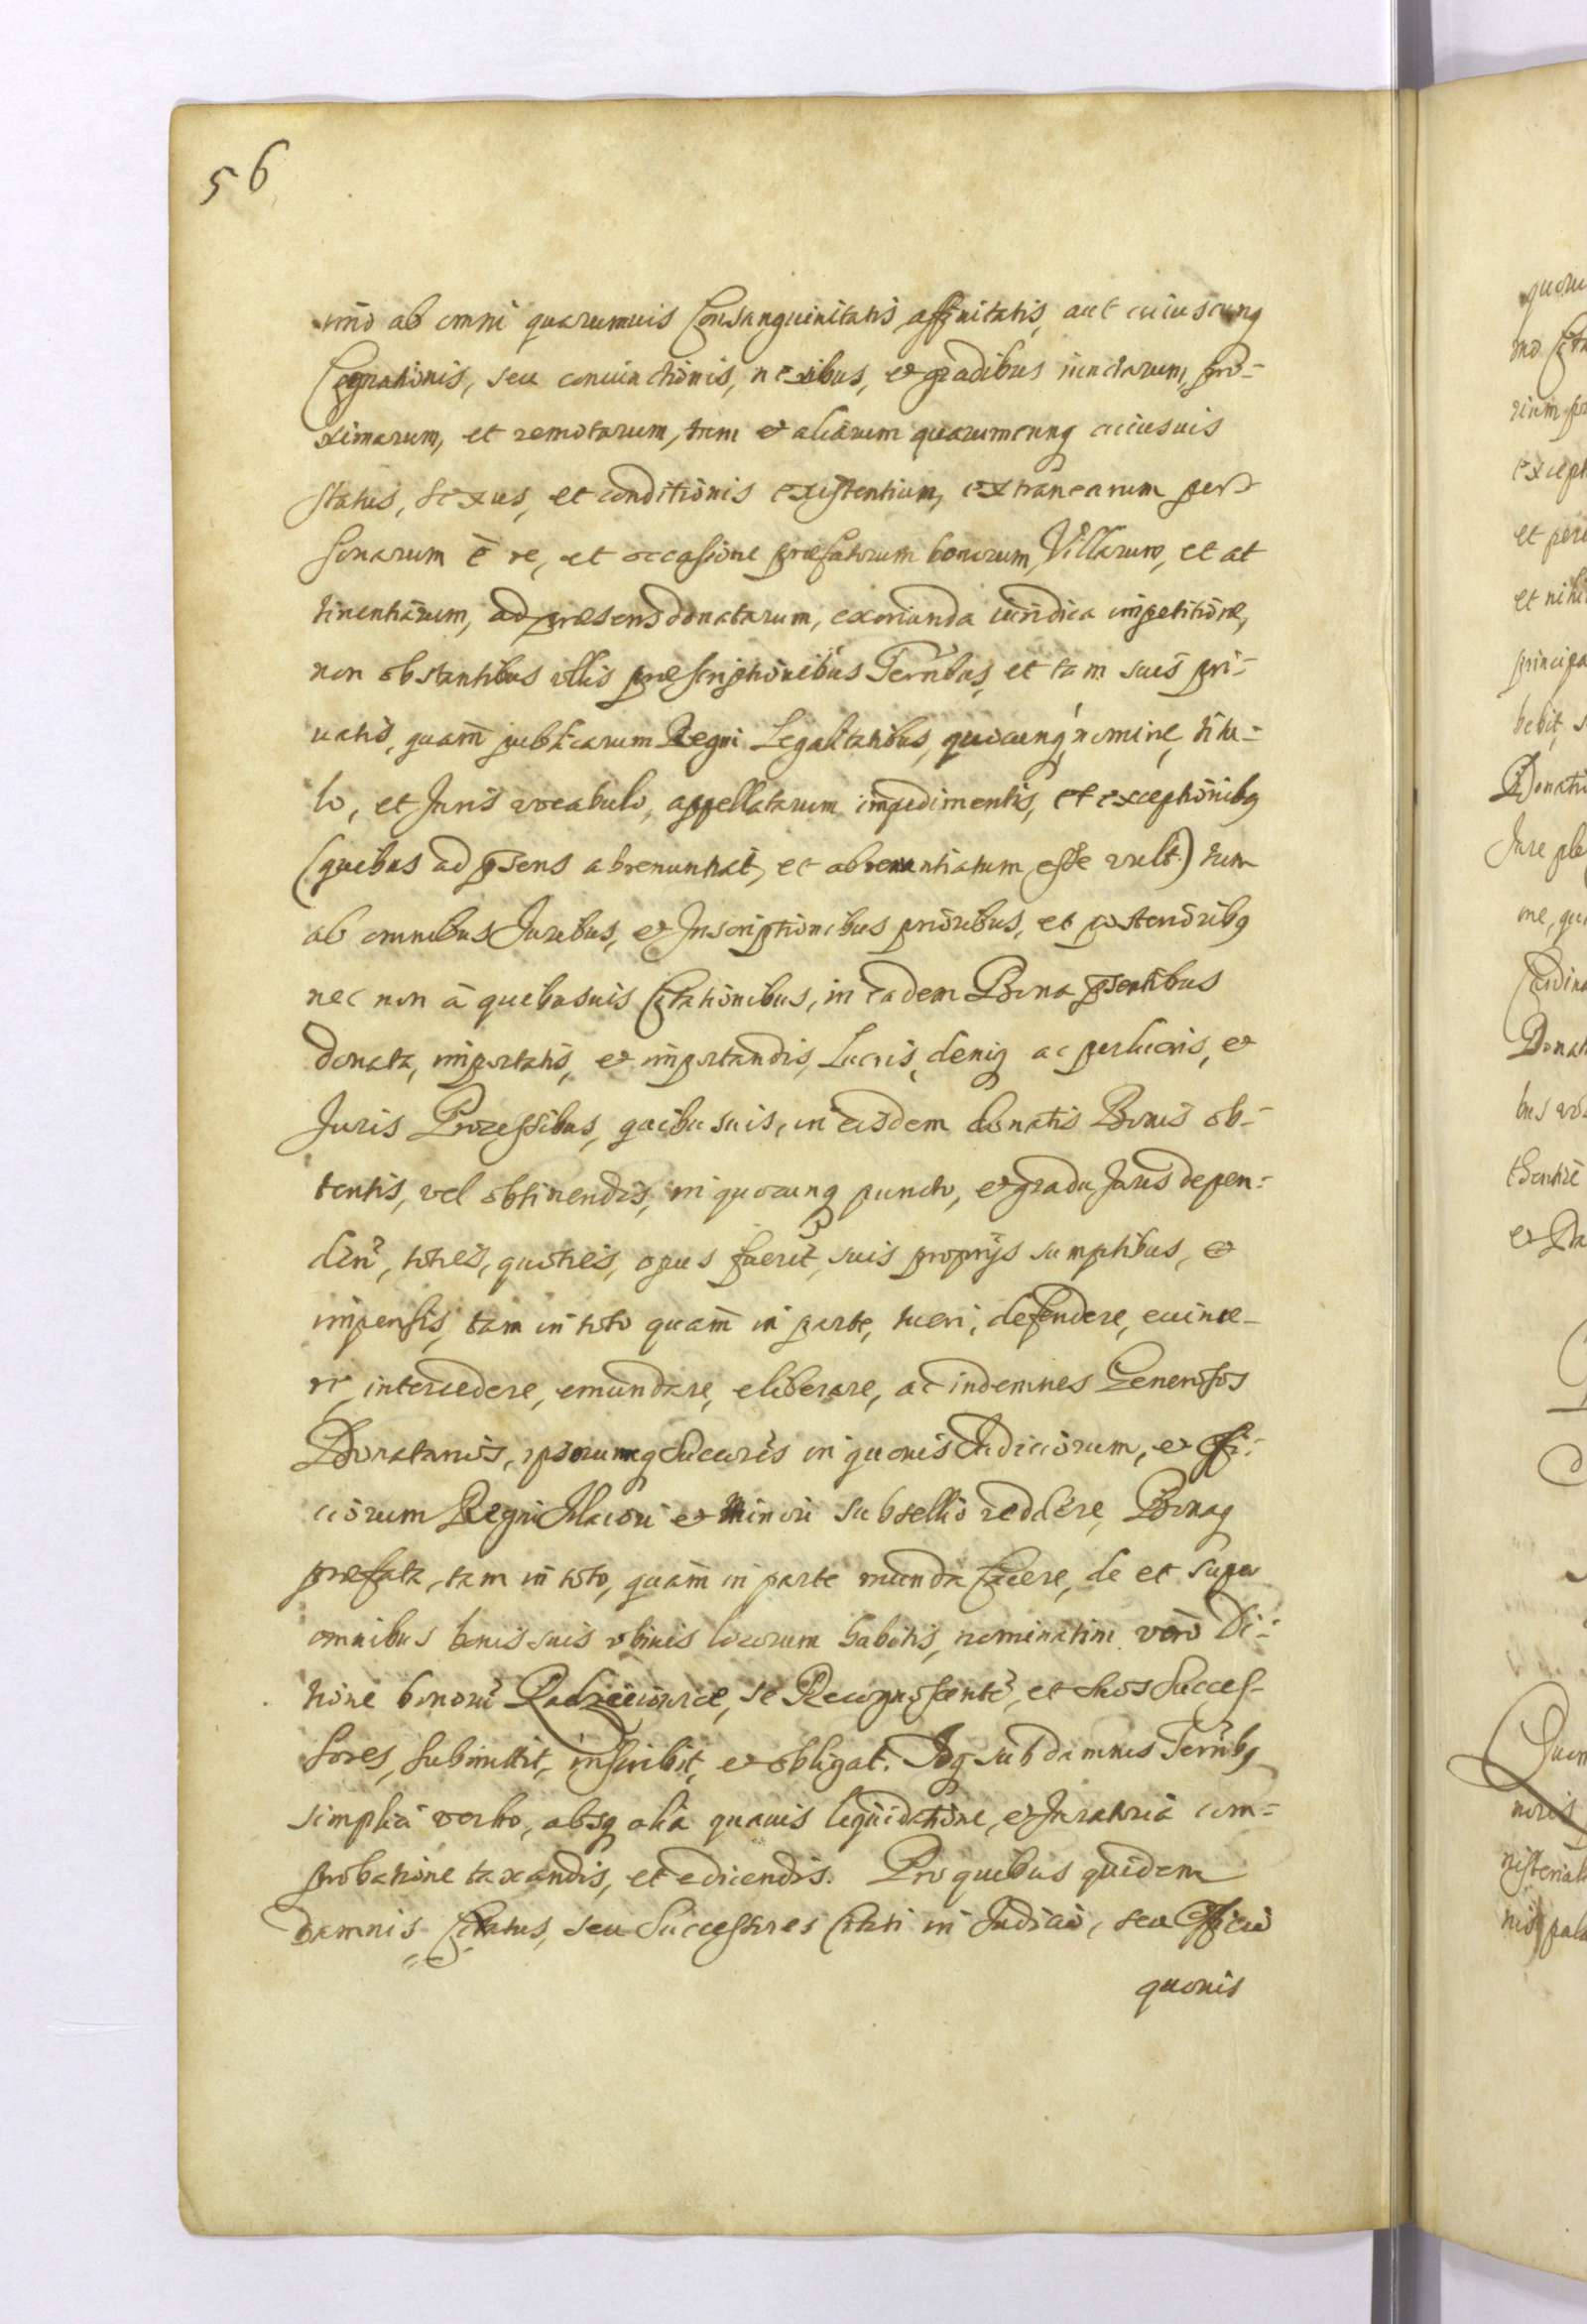 56
imò ab omni quarumuis Consanguinitatis, affinitatis, aut cuiuscunq
Cognationis, seu conuinctionis, nexibus, et gradibus iunctarum, pro-
ximarum, et remotarum, tum et aliarum quarumcunq cuiusuis
status, sexus, et conditionis existentium, extranearum per-
sonarum è re, et occasione præfatorum bonorum, Villarum, et at
tinentiarum, ad præsens donatarum, exoriunda iuridica impetitione,
non obstantibus ullis præscriptionibus Terribus, et tam suis pri-
uatis, quam publicarum Regni Legalitatibus, quocunq nomine, titu-
lo, et Juris vocabulo, appellatarum impedimentis, et exceptionibq
(quibus ad psens abrenuntiat, et abrenuntiatum esse vult) tum
ab omnibus Juribus, et Inscriptionibus prioribus, et posterioribq
nec non à quibusuis Citationibus, in eadem Bona psentibus
donata, importatis, et importandis, Lucris, deniq ac perlucris, et
Juris Processibus, quibusuis, in eisdem donatis Bonis ob-
tentis, vel obtinendis, in quocunq puncto, et gradu Juris depen-
den, toties, quoties, opus fuerit, suis proprijs sumptibus, et
impensis, tam in toto quam in parte, tueri, defendere, euince-
re, intercedere, emundare, eliberare, ac indemnes Generosos
Donatarios, ipsorumq Succores in quouis Judiciorum, et Offi-
ciorum Regni Maiori et Minori subsellio reddere, Bonaq
præfata, tam in toto, quam in parte munda facere, de et super
omnibus bonis suis vbiuis locorum habitis, nominatim verò Di-
tione bonorũ Radzieiowice, se Recognoscente, et suos Succes-
sores, submittit, inscribit, et obligat. Idq sub damnis Terribq
simplici verbo, absq alia quauis liquidatione, et Juratoria com-
probatione taxandis, et edicendis. Pro quibus quidem
damnis Citatus, seu Successores Citati in Judicio, seu Officio
quouis